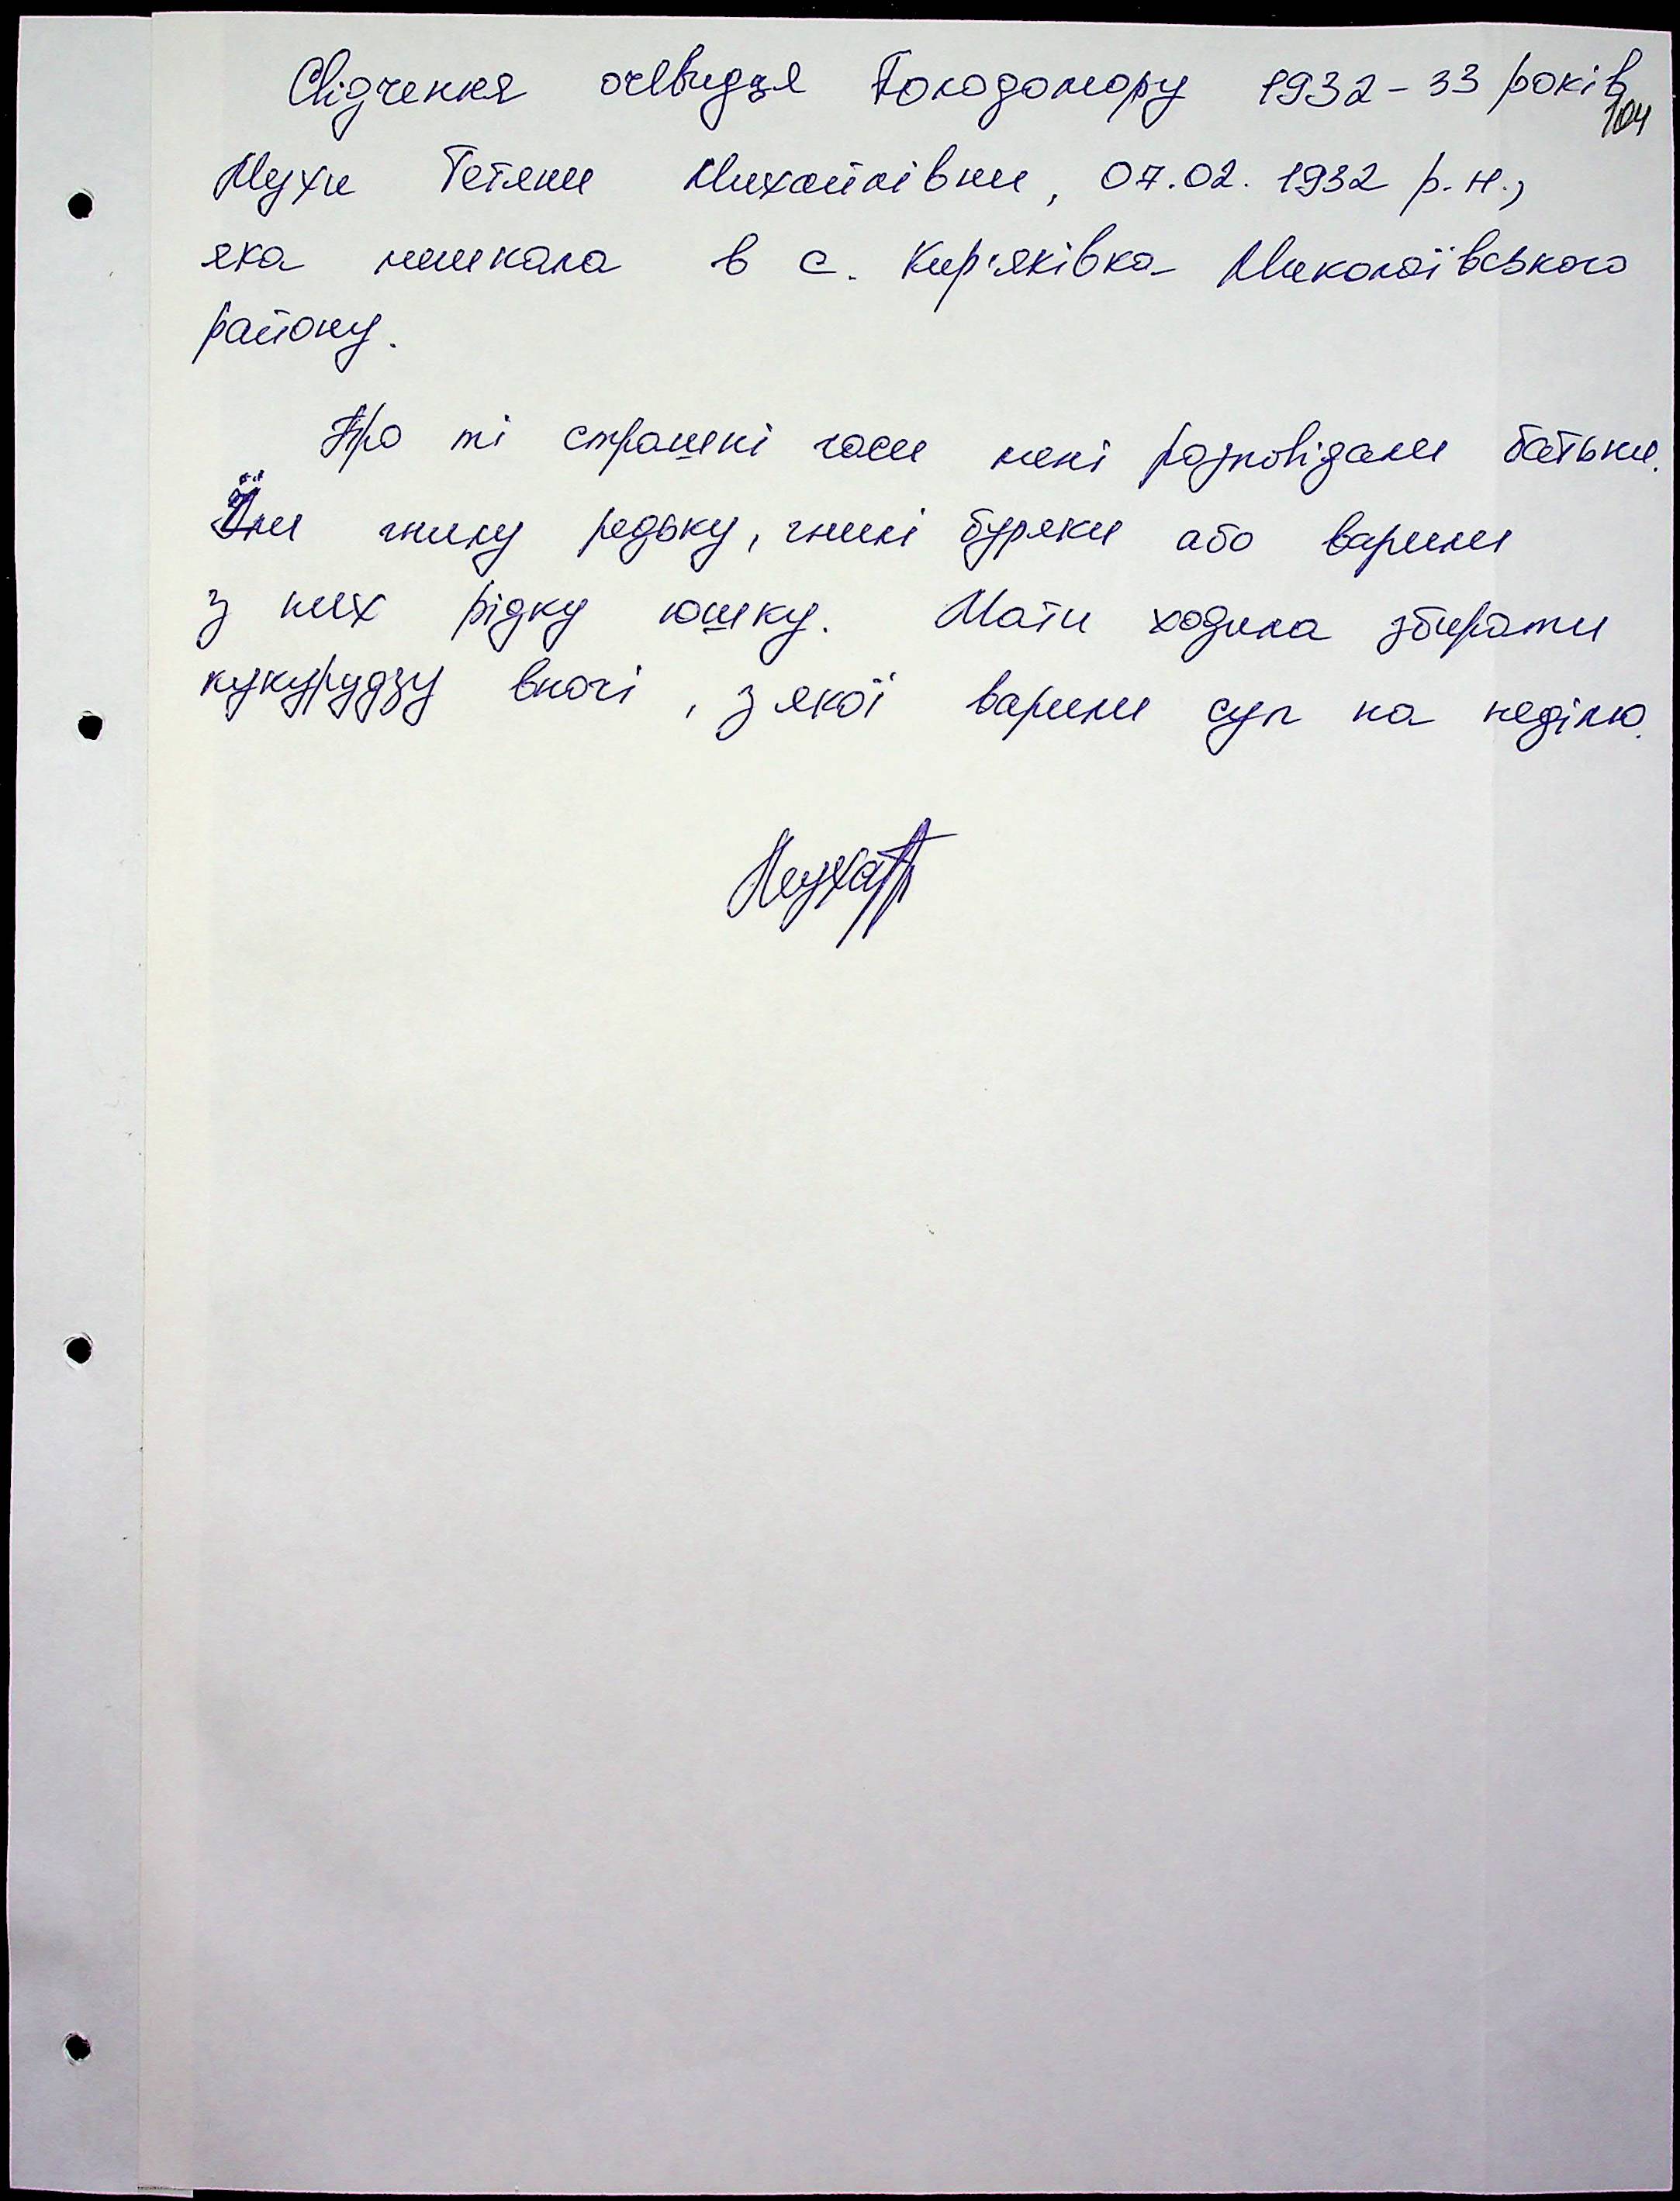 Свідчення очевидця Голодомору 1932-33 років
104
Мухи Тетяни Михайлівни, 07.02.1932 р.н.,
яка мешкала в с. Кир'яківка Миколаївського
району.
Про ті страшні часи мені розповідали батьки.
Їли гнилу редьку, гнилі буряки або варили
з них рідку юшку. Мати ходила збирати
кукурудзу вночі, з якої варили суп на неділю.
Муха